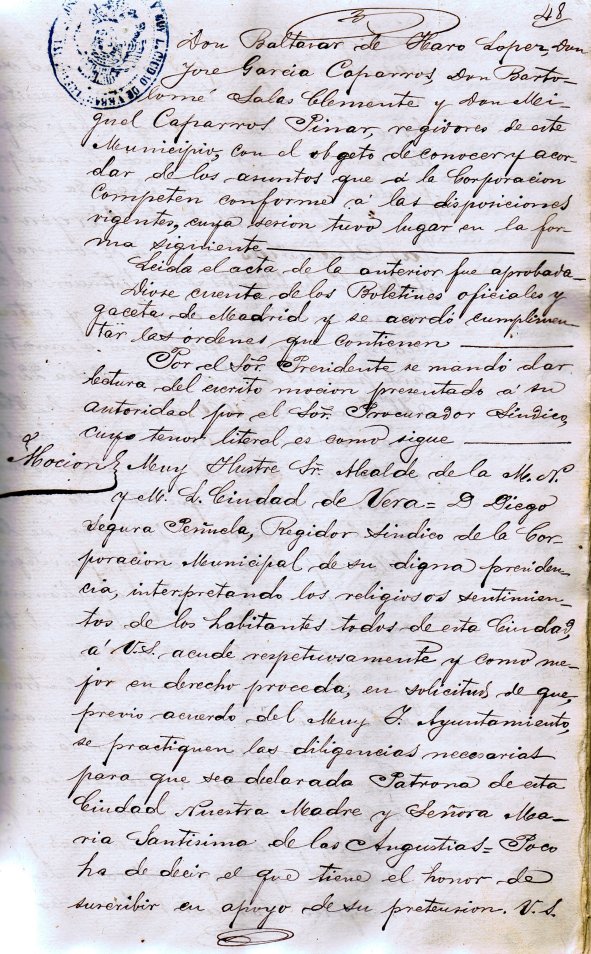 48
Don Baltasar de Haro Lopez, Don
Jose Garcia Caparros, Don Barto-
lomé Salas Clemente y Don Mi-
guel Caparros Pinar, regidores de este
Municipio, con el obgeto de conocer y acor-
dar de los asuntos que á la Corporacion
competen conforme á las disposiciones
vigentes, cuya sesion tuvo lugar en la for-
ma siguiente
Leida el acta de la anterior fue aprobada-
Diose cuenta de los Boletines oficiales y
gaceta de Madrid y se acordó cumplimen-
tar las órdenes que contienen
Por el Sor. Presidente se mandó dar
lectura del escrito mocion presentado á su
autoridad por el Sor. Procurador Sindico,
cuyo tenor literal es como sigue
Mocion Muy Ilustre Sr. Alcalde de la M. N.
y M. L. Ciudad de Vera= D Diego
Segura Peñuela, Regidor Sindico de la Cor-
poracion Municipal de su digna presiden-
cia, interpretando los religiosos sentimien-
tos de los habitantes todos de esta Ciudad,
á V.S. acude respetuosamente y como me-
jor en derecho proceda, en solicitud de que,
previo acuerdo del Muy I. Ayuntamiento,
se practiquen las diligencias necesarias
para que sea declarada Patrona de esta
Ciudad Nuestra Madre y Señora Ma-
ria Santisima de las Angustias= Poco
ha de decir el que tiene el honor de
suscribir en apoyo de su pretension. V.S.